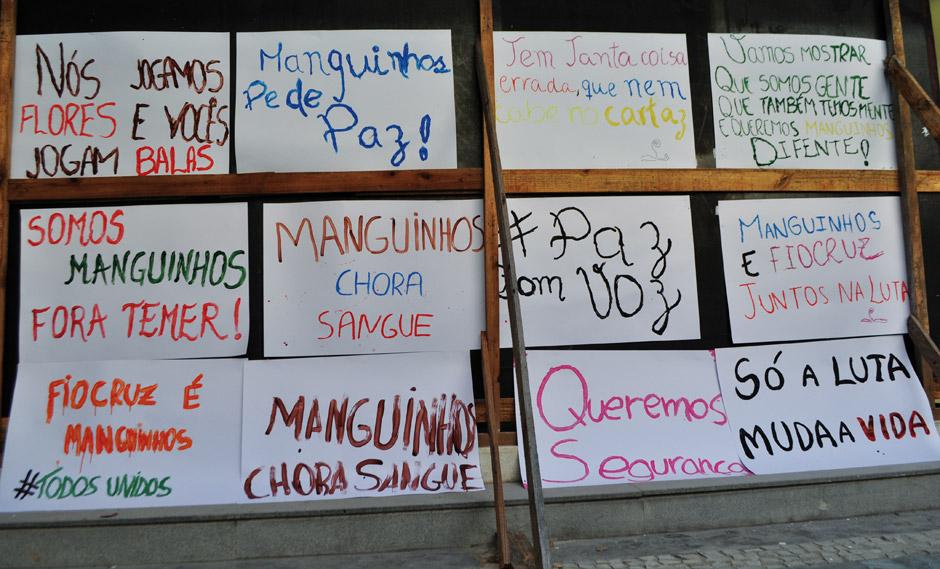 NÓS JOGAMOS
FLORES E VOCÊS
JOGAM BALAS
Manguinhos
Pede
Paz!
Tem Tanta coisa
errada, que nem
cabe no cartaz
VAMOS MOSTRAR
QUE SOMOS GENTE
QUE TAMBÉM TEMOS MENTE
E QUEREMOS MANGUINHOS
DIFENTE!
SOMOS
MANGUINHOS
FORA TEMER!
MANGUINHOS
CHORA
SANGUE
#Paz
Com VOZ
MANGUINHOS
E FIOCRUZ
JUNTOS NA LUTA
FIOCRUZ É
MANGUINHOS
#TODOS UNIDOS
MANGUINHOS
CHORA SANGUE
Queremos
Segurança
SÓ A LUTA
MUDA A VIDA